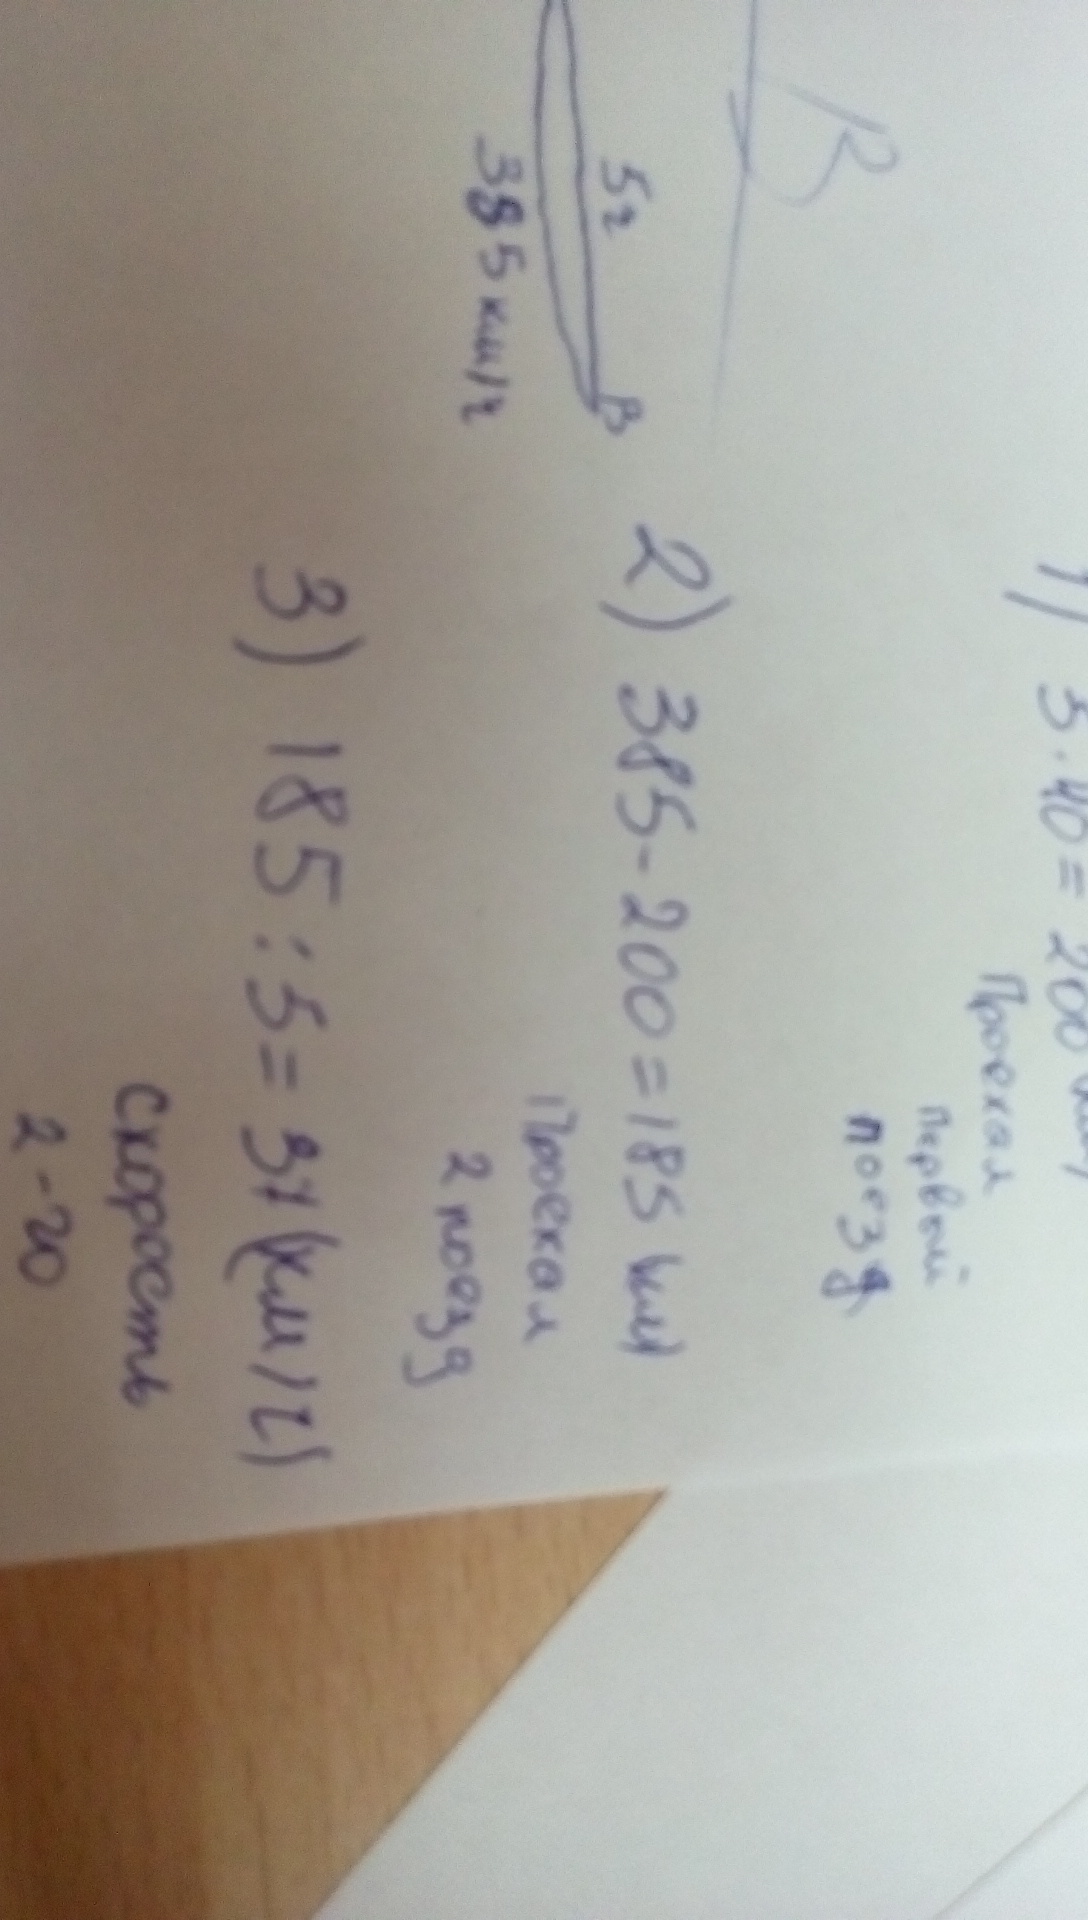 В
5 ч
В
385 км/ч
1) 5·40=200 (км)
Проехал
первый
поезд
2) 385-200=185 (км)
Проехал
2 поезд
3) 185:5=37(км/ч)
скорость
2-го